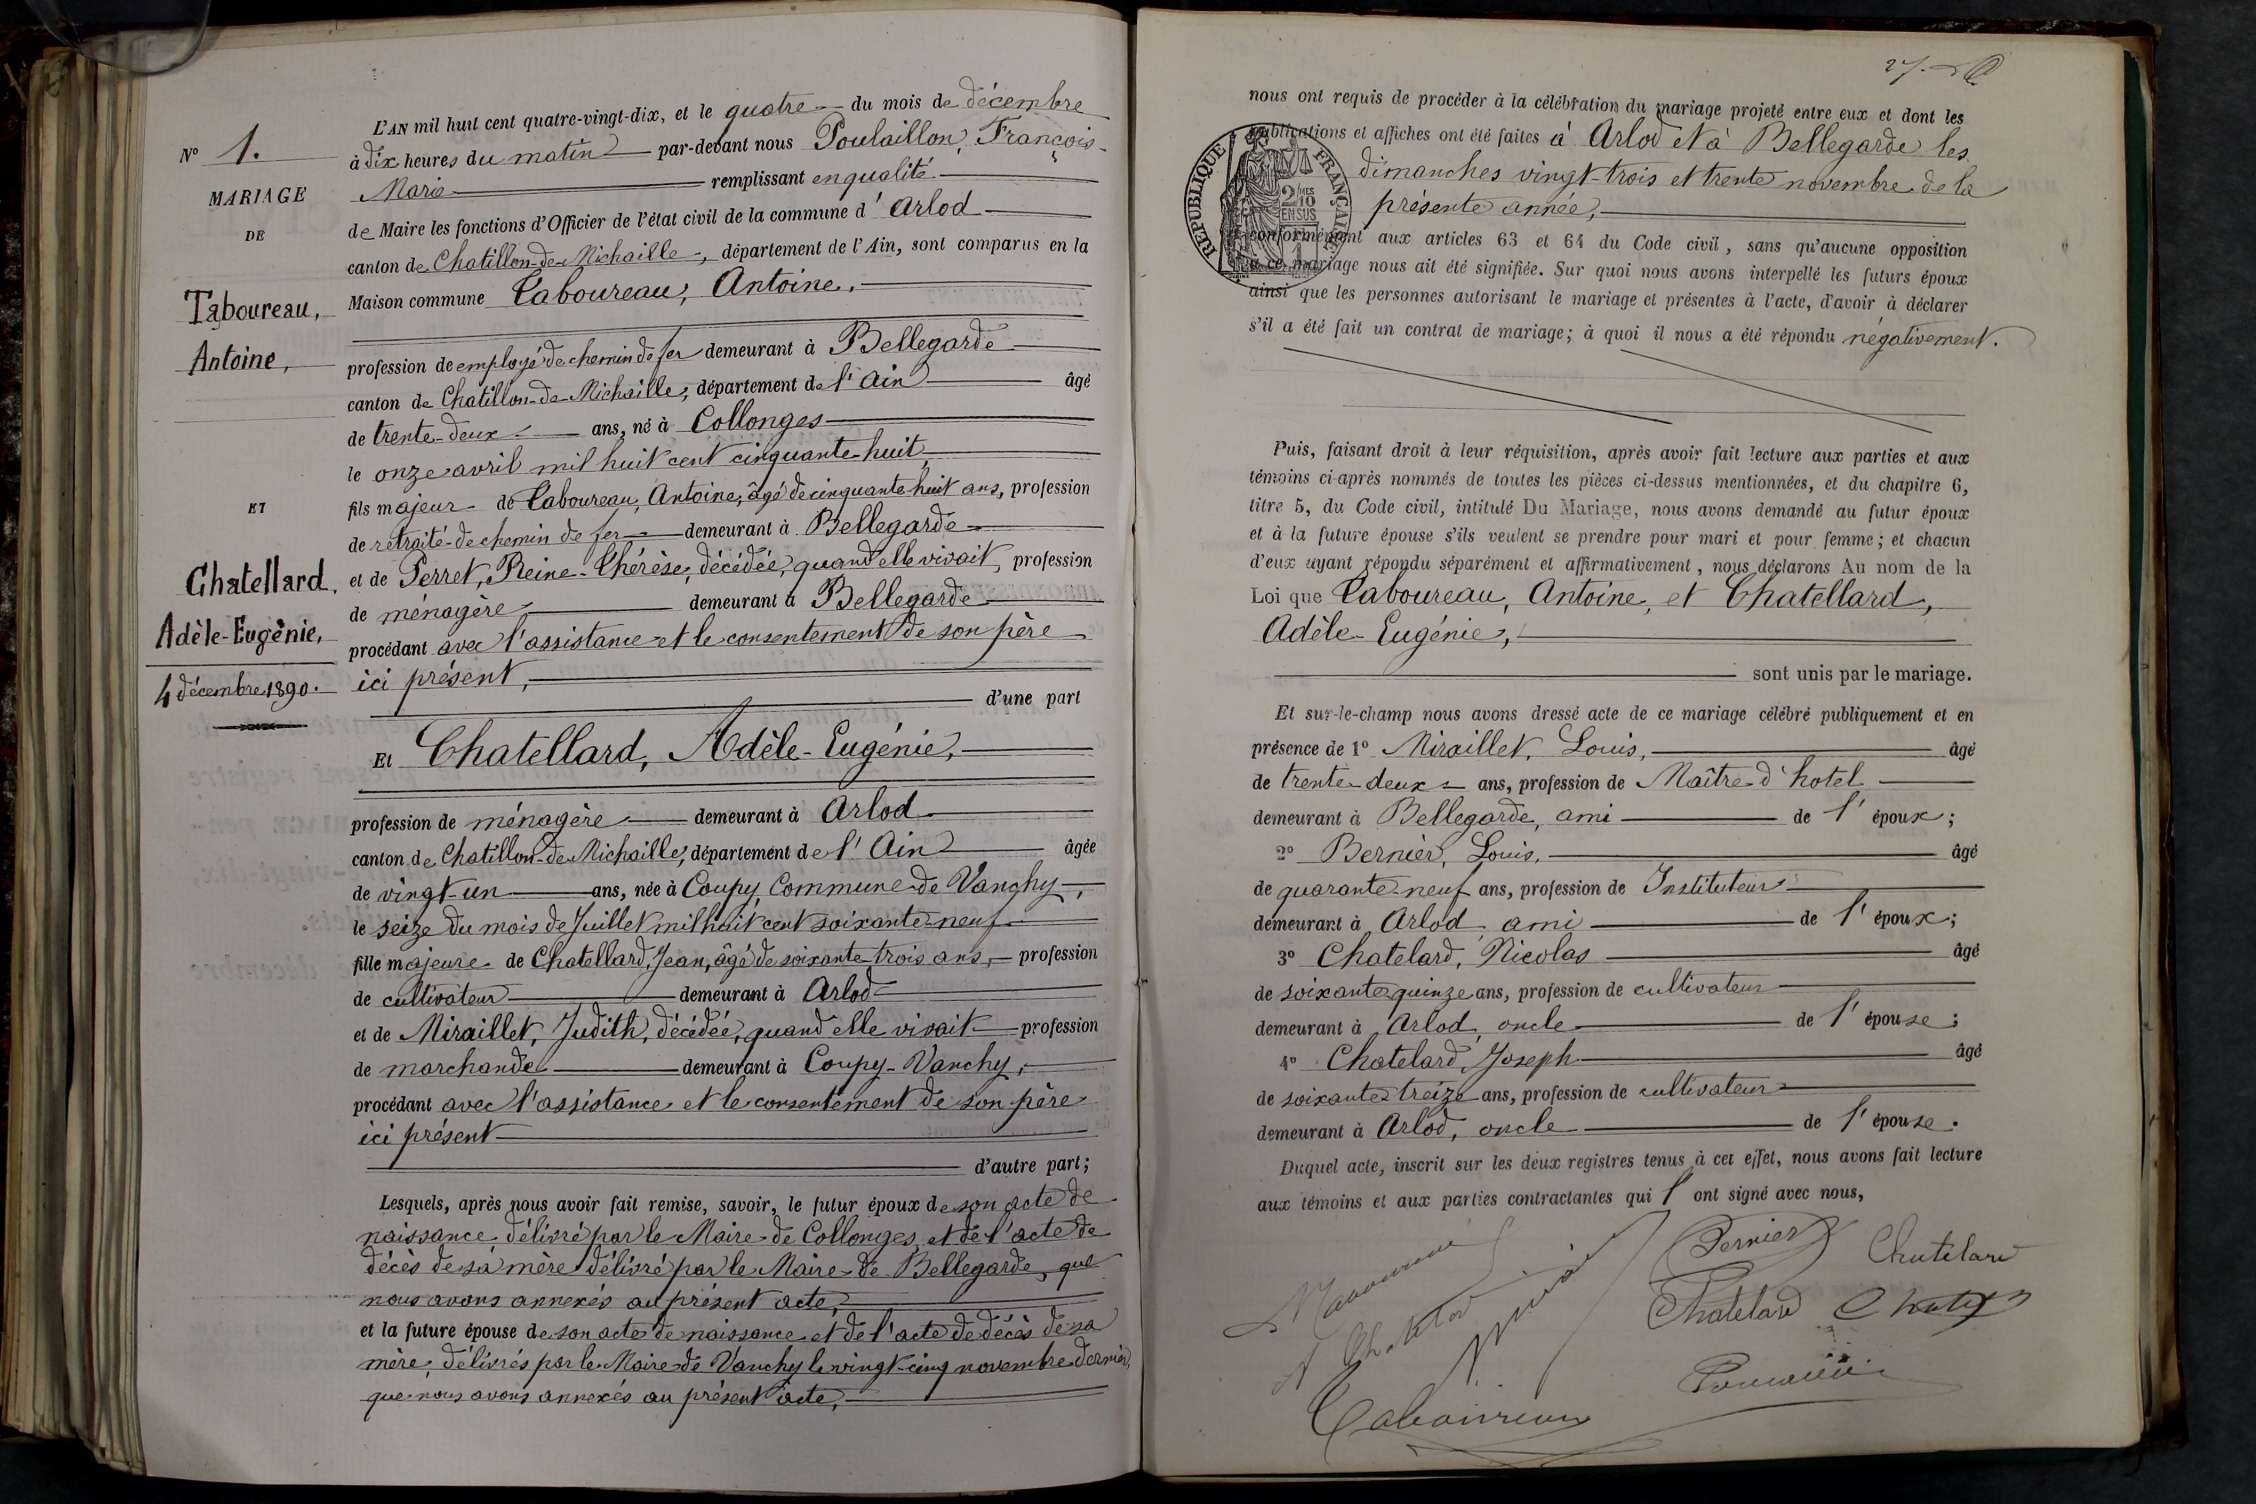 L'AN mil huit cent quatre-vingt-dix, et le quatre du mois de décembre
à dix heures du matin par-devant nous Poulaillon, François-
Marie remplissant en qualité
de Maire les fonctions d'Officier de l'état civil de la commune d'Arlod
canton de Chatillon-de-Michaille, département de l'Ain, sont comparus en la
Maison commune Taboureau, Antoine,
profession de employé de chemin de fer demeurant à Bellegarde
canton de Chatillon-de-Michaille, département de l'Ain âgé
de trente-deux ans, né à Collonges
le onze avril mil huit cent cinquante-huit,
fils majeur de Taboureau, Antoine, âgé de cinquante-huit ans, profession
de retraité de chemin de fer demeurant à Bellegarde
et de Perret, Reine-Thérèse, décédée, quand elle vivait, profession
de ménagère, demeurant à Bellegarde
procédant avec l'assistance et le consentement de son père
ici présent,
d'une part
Et Chatellard, Adèle-Eugénie,
profession de ménagère demeurant à Arlod
canton de Chatillon-de-Michaille, département de l'Ain âgée
de vingt-un ans, née à Coupy, Commune de Vanchy,
le seize du mois de Juillet mil huit cent soixante-neuf
fille majeure de Chatellard, Jean, âgé de soixante-trois ans, profession
de cultivateur demeurant à Arlod
et de Miraillet, Judith, décédée, quand elle vivait profession
de marchande demeurant à Coupy-Vanchy,
procédant avec l'assistance et le consentement de son père
ici présent
d'autre part;
Lesquels, après nous avoir fait remise, savoir, le futur époux de son acte de
naissance délivré par le Maire de Collonges, et de l'acte de
décès de sa mère délivré par le Maire de Bellegarde, que
nous avons annexés au présent acte,
et la future épouse de son acte de naissance et de l'acte de décès de sa
mère, délivrés par le Maire de Vanchy le vingt-cinq novembre dernier,
que nous avons annexés au présent acte,
N° 1.
MARIAGE
DE
Taboureau,
Antoine,
ET
Chatellard,
Adèle-Eugénie,
4 décembre 1890.
27.
nous ont requis de procéder à la célébration du mariage projeté entre eux et dont les
publications et affiches ont été faites à Arlod et à Bellegarde les
dimanches vingt-trois et trente novembre de la
présente année,
conformément aux articles 63 et 64 du Code civil, sans qu'aucune opposition
à ce mariage nous ait été signifiée. Sur quoi nous avons interpellé les futurs époux
ainsi que les personnes autorisant le mariage et présentes à l'acte, d'avoir à déclarer
s'il a été fait un contrat de mariage; à quoi il nous a été répondu négativement.
RÉPUBLIQUE FRANÇAISE
2/10MES
EN SUS
Puis, faisant droit à leur réquisition, après avoir fait lecture aux parties et aux
témoins ci-après nommés de toutes les pièces ci-dessus mentionnées, et du chapitre 6,
titre 5, du Code civil, intitulé Du Mariage, nous avons demandé au futur époux
et à la future épouse s'ils veulent se prendre pour mari et pour femme; et chacun
d'eux ayant répondu séparément et affirmativement, nous déclarons Au nom de la
Loi que Taboureau, Antoine, et Chatellard,
Adèle-Eugénie,
sont unis par le mariage.
Et sur-le-champ nous avons dressé acte de ce mariage célébré publiquement et en
présence de 1° Miraillet, Louis, âgé
de trente-deux ans, profession de Maître d'hotel
demeurant à Bellegarde, ami de l'époux;
2° Bernier, Louis, âgé
de quarante-neuf ans, profession de Instituteur
demeurant à Arlod, ami de l'époux;
3° Chatelard, Nicolas âgé
de soixante-quinze ans, profession de cultivateur
demeurant à Arlod, oncle de l'épouse;
4° Chatelard, Joseph âgé
de soixante-treize ans, profession de cultivateur
demeurant à Arlod, oncle de l'épouse.
Duquel acte, inscrit sur les deux registres tenus à cet effet, nous avons fait lecture
aux témoins et aux parties contractantes qui l'ont signé avec nous,
Bernier
Chatelard
Chatelard
Taboureau